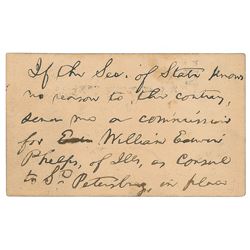 If the Sec. of State knows
no reason to, the contrary,
send me a commission
for William Edwin
Phelps, of Ills, as Consul
to St. Petersburg, in place